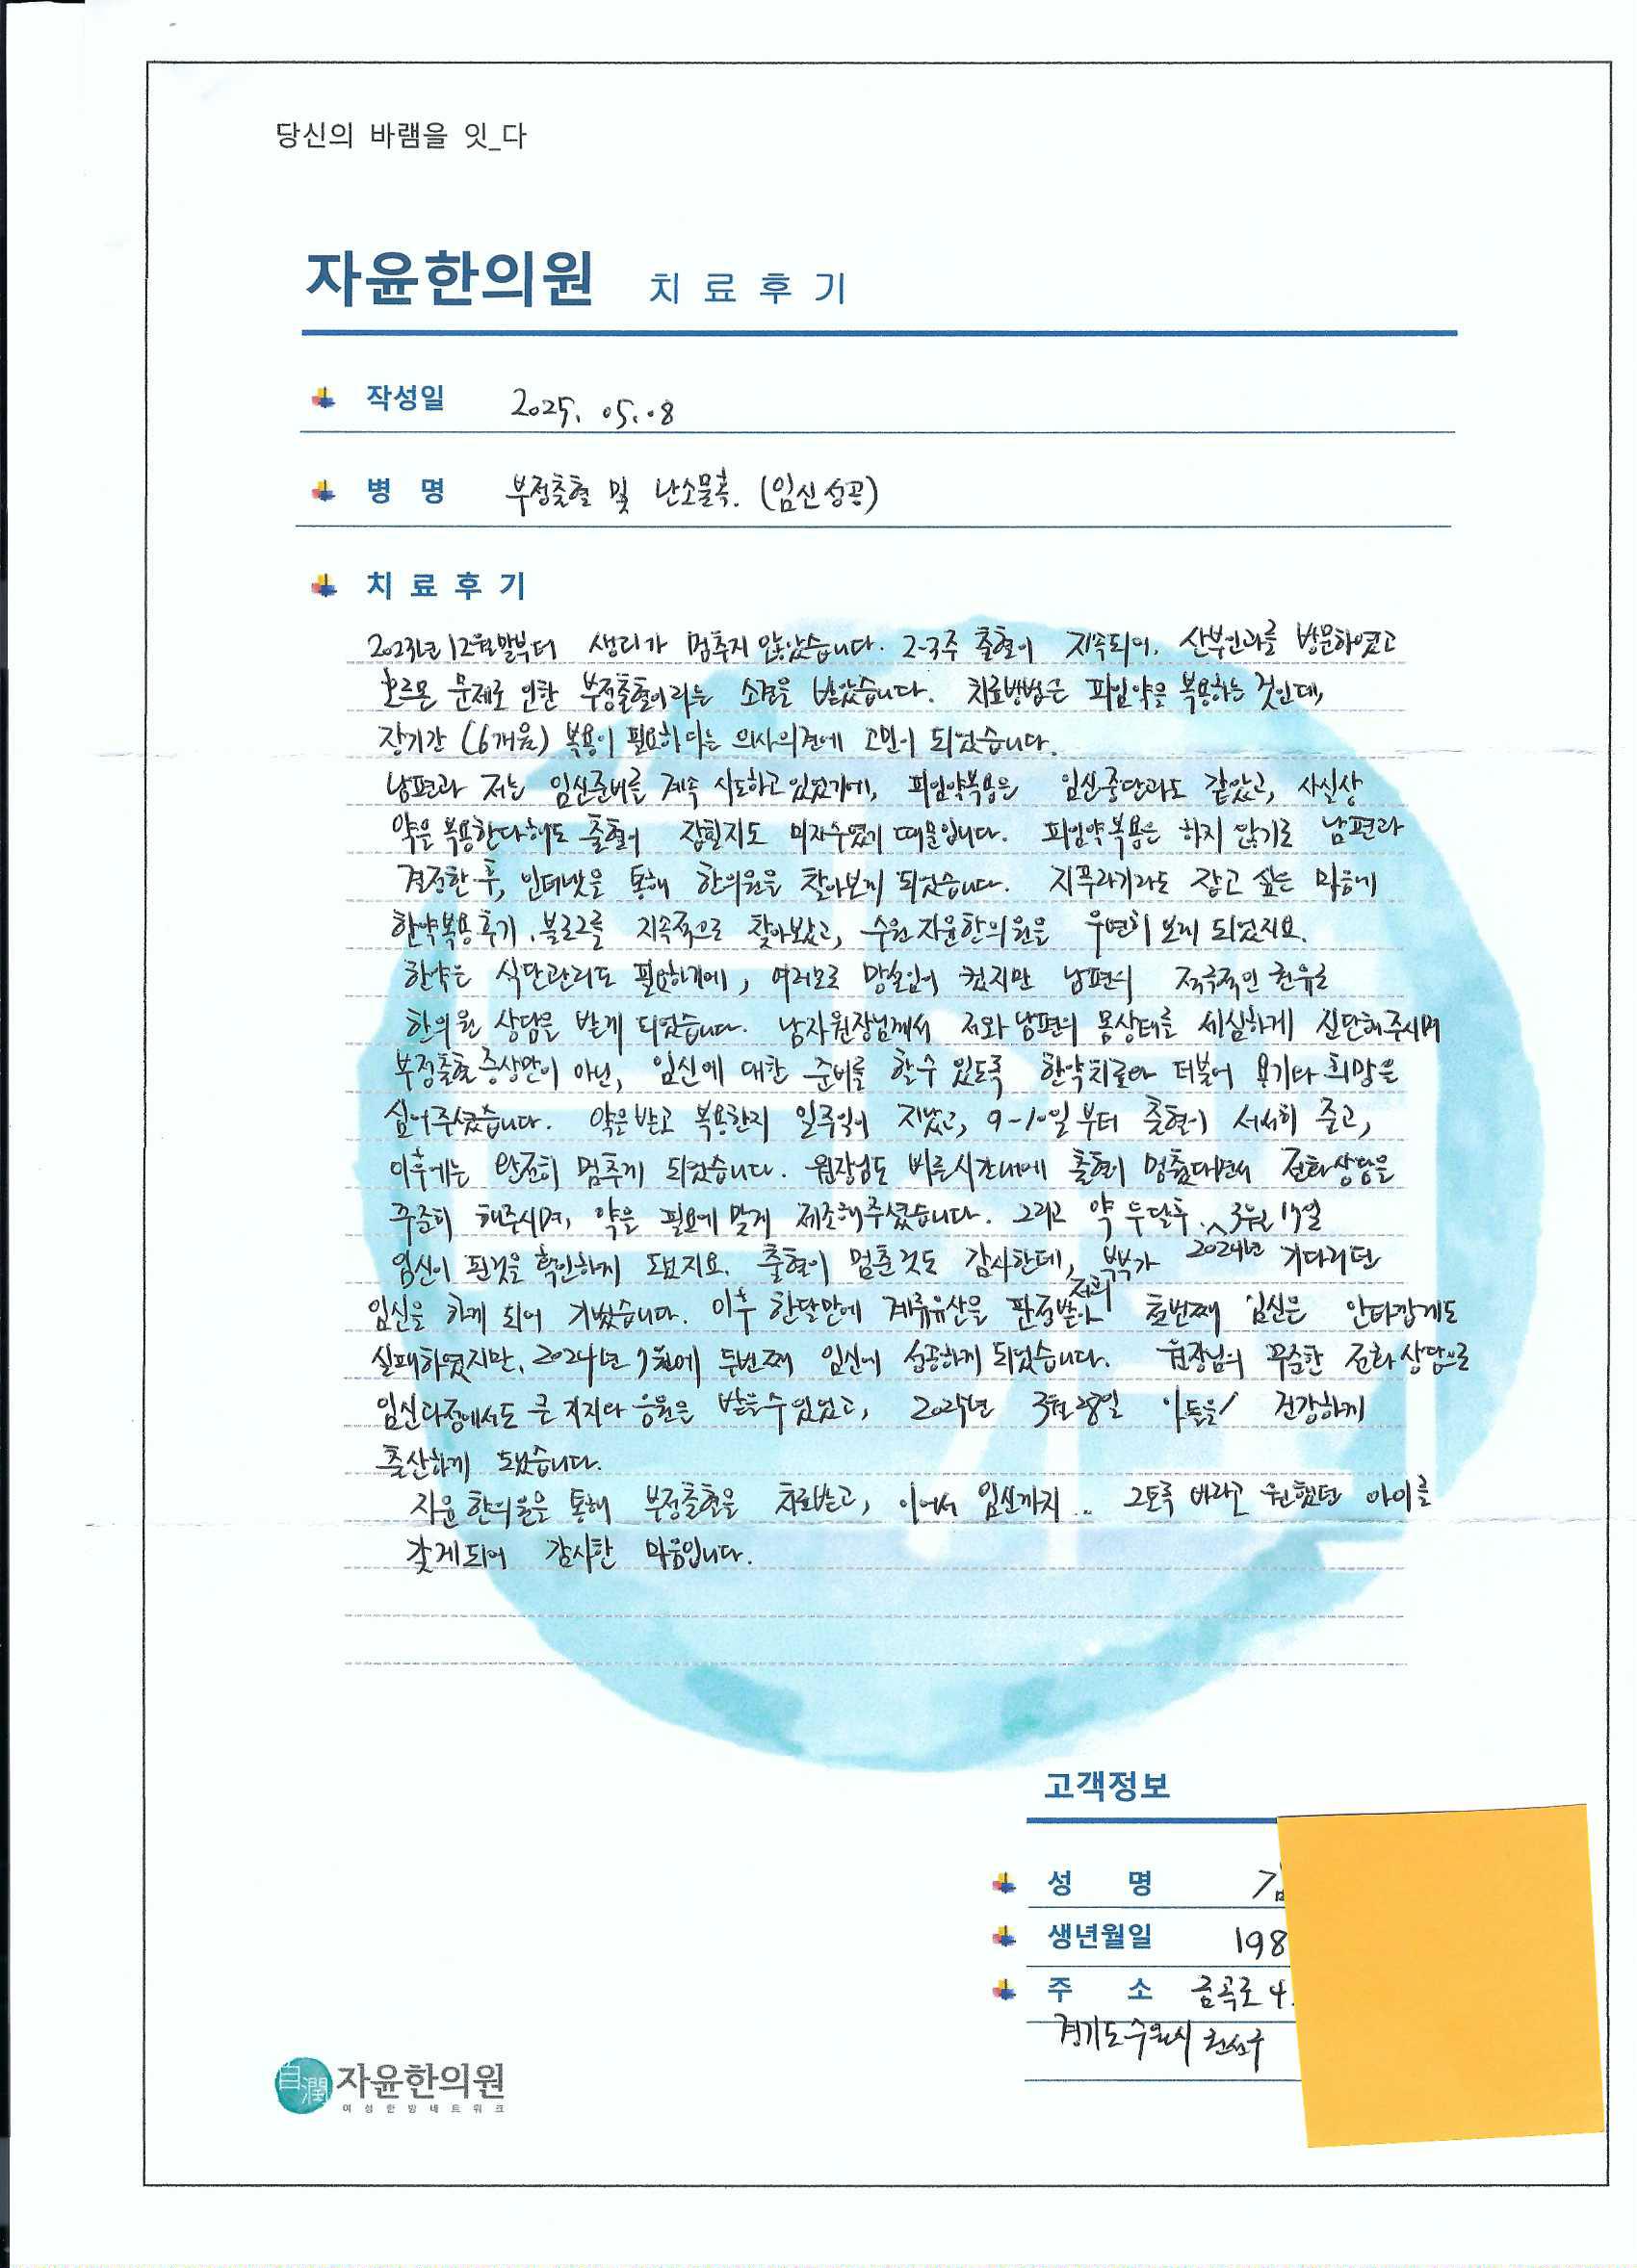 당신의 바램을 잇_다
자윤한의원 치료후기
작성일 2025. 05. 08
병 명 부정출혈 및 난소물혹. (임신성공)
치료후기
2023년 12월말부터 생리가 멈추지 않았습니다. 2-3주 출혈이 지속되어. 산부인과를 방문하였고
호르몬 문제로 인한 부정출혈이라는 소견을 받았습니다. 치료방법은 피임약을 복용하는 것인데,
장기간 (6개월) 복용이 필요하다는 의사의견에 고민이 되었습니다.
남편과 저는 임신준비를 계속 시도하고 있었기에, 피임약복용은 임신중단과도 같았고, 사실상
약을 복용한다해도 출혈이 잡힐지도 미지수였기 때문입니다. 피임약복용은 하지 않기로 남편과
결정한 후, 인터넷을 통해 한의원을 찾아보게 되었습니다. 지푸라기라도 잡고 싶은 마음에
한약복용후기. 블로그를 지속적으로 찾아보았고, 수원 자윤한의원을 우연히 보게 되었지요.
한약은 식단관리도 필요하기에, 여러모로 망설임이 컸지만 남편의 적극적인 권유로
한의원 상담을 받게 되었습니다. 남자원장님께서 저와 남편의 몸상태를 세심하게 진단해주시며
부정출혈 증상만이 아닌, 임신에 대한 준비를 할수 있도록 한약치료와 더불어 용기와 희망을
심어주셨습니다. 약을받고 복용한지 일주일이 지났고, 9-10일부터 출혈이 서서히 줄고,
이후에는 완전히 멈추게 되었습니다. 원장님도 빠른시간내에 출혈이 멈췄다면서 전화상담을
꾸준히 해주시며, 약을 필요에 맞게 제조해주셨습니다. 그리고 약 두달후. 2024년 3월 17일
임신이 된것을 확인하게 되었지요. 출혈이 멈춘것도 감사한데, 저희 부부가 기다리던
임신을 하게 되어 기뻤습니다. 이후 한달만에 계류유산을 판정받아 첫번째 임신은 안타깝게도
실패하였지만, 2024년 7월에 두번째 임신에 성공하게 되었습니다. 원장님의 꾸준한 전화상담으로
임신과정에서도 큰 지지와 응원을 받을수 있었고, 2025년 3월 28일 아들을! 건강하게
출산하게 되었습니다.
자윤 한의원을 통해 부정출혈을 치료받고, 이어서 임신까지.. 그토록 바라고 원했던 아이를
갖게되어 감사한 마음입니다.
고객정보
성 명
생년월일 198
주 소 금곡로 4
경기도 수원시 권선구
自潤 자윤한의원
여성한방네트워크